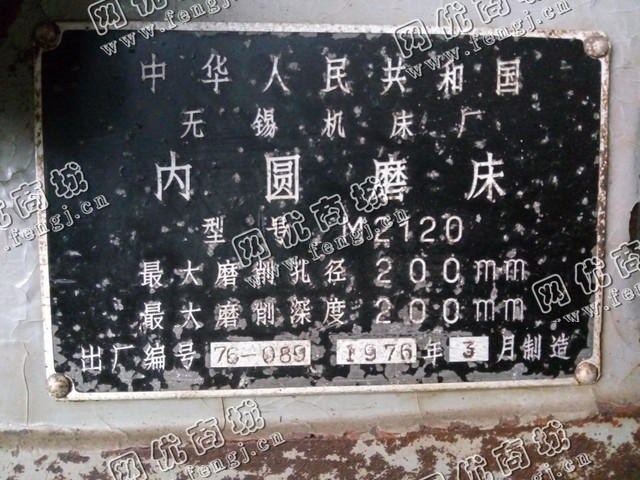 中华人民共和国
无锡机床厂
内圆磨床
型号 M2120
最大磨削孔径 200mm
最大磨削深度 200mm
出厂编号 76-089 1976年3月制造
网优商城
www.fengj.cn
网优商城
www.fengj.cn
网优商城
www.fengj.cn
网优商城
www.fengj.cn
网优商城
www.fengj.cn
网优商城
www.fengj.cn
网优商城